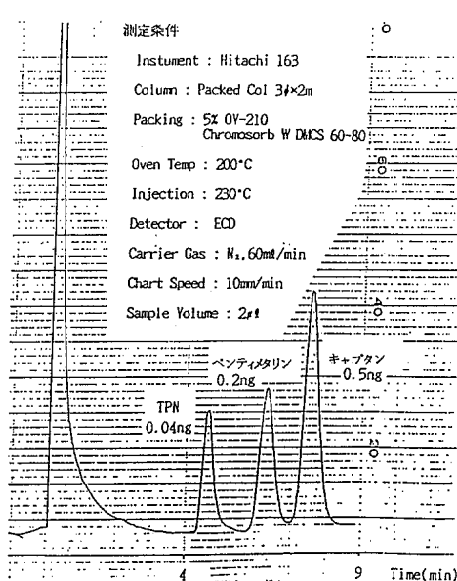 測定条件
Instument : Hitachi 163
Column : Packed Col 3φ×2m
Packing : 5% OV-210
Chromosorb W DMCS 60~80
Oven Temp : 200°C
Injection : 230°C
Detector : ECD
Carrier Gas : N₂, 60mℓ/min
Chart Speed : 10mm/min
Sample Volume : 2μℓ
ペンディメタリン
0.2ng
キャプタン
0.5ng
TPN
0.04ng
4
9
Time(min)